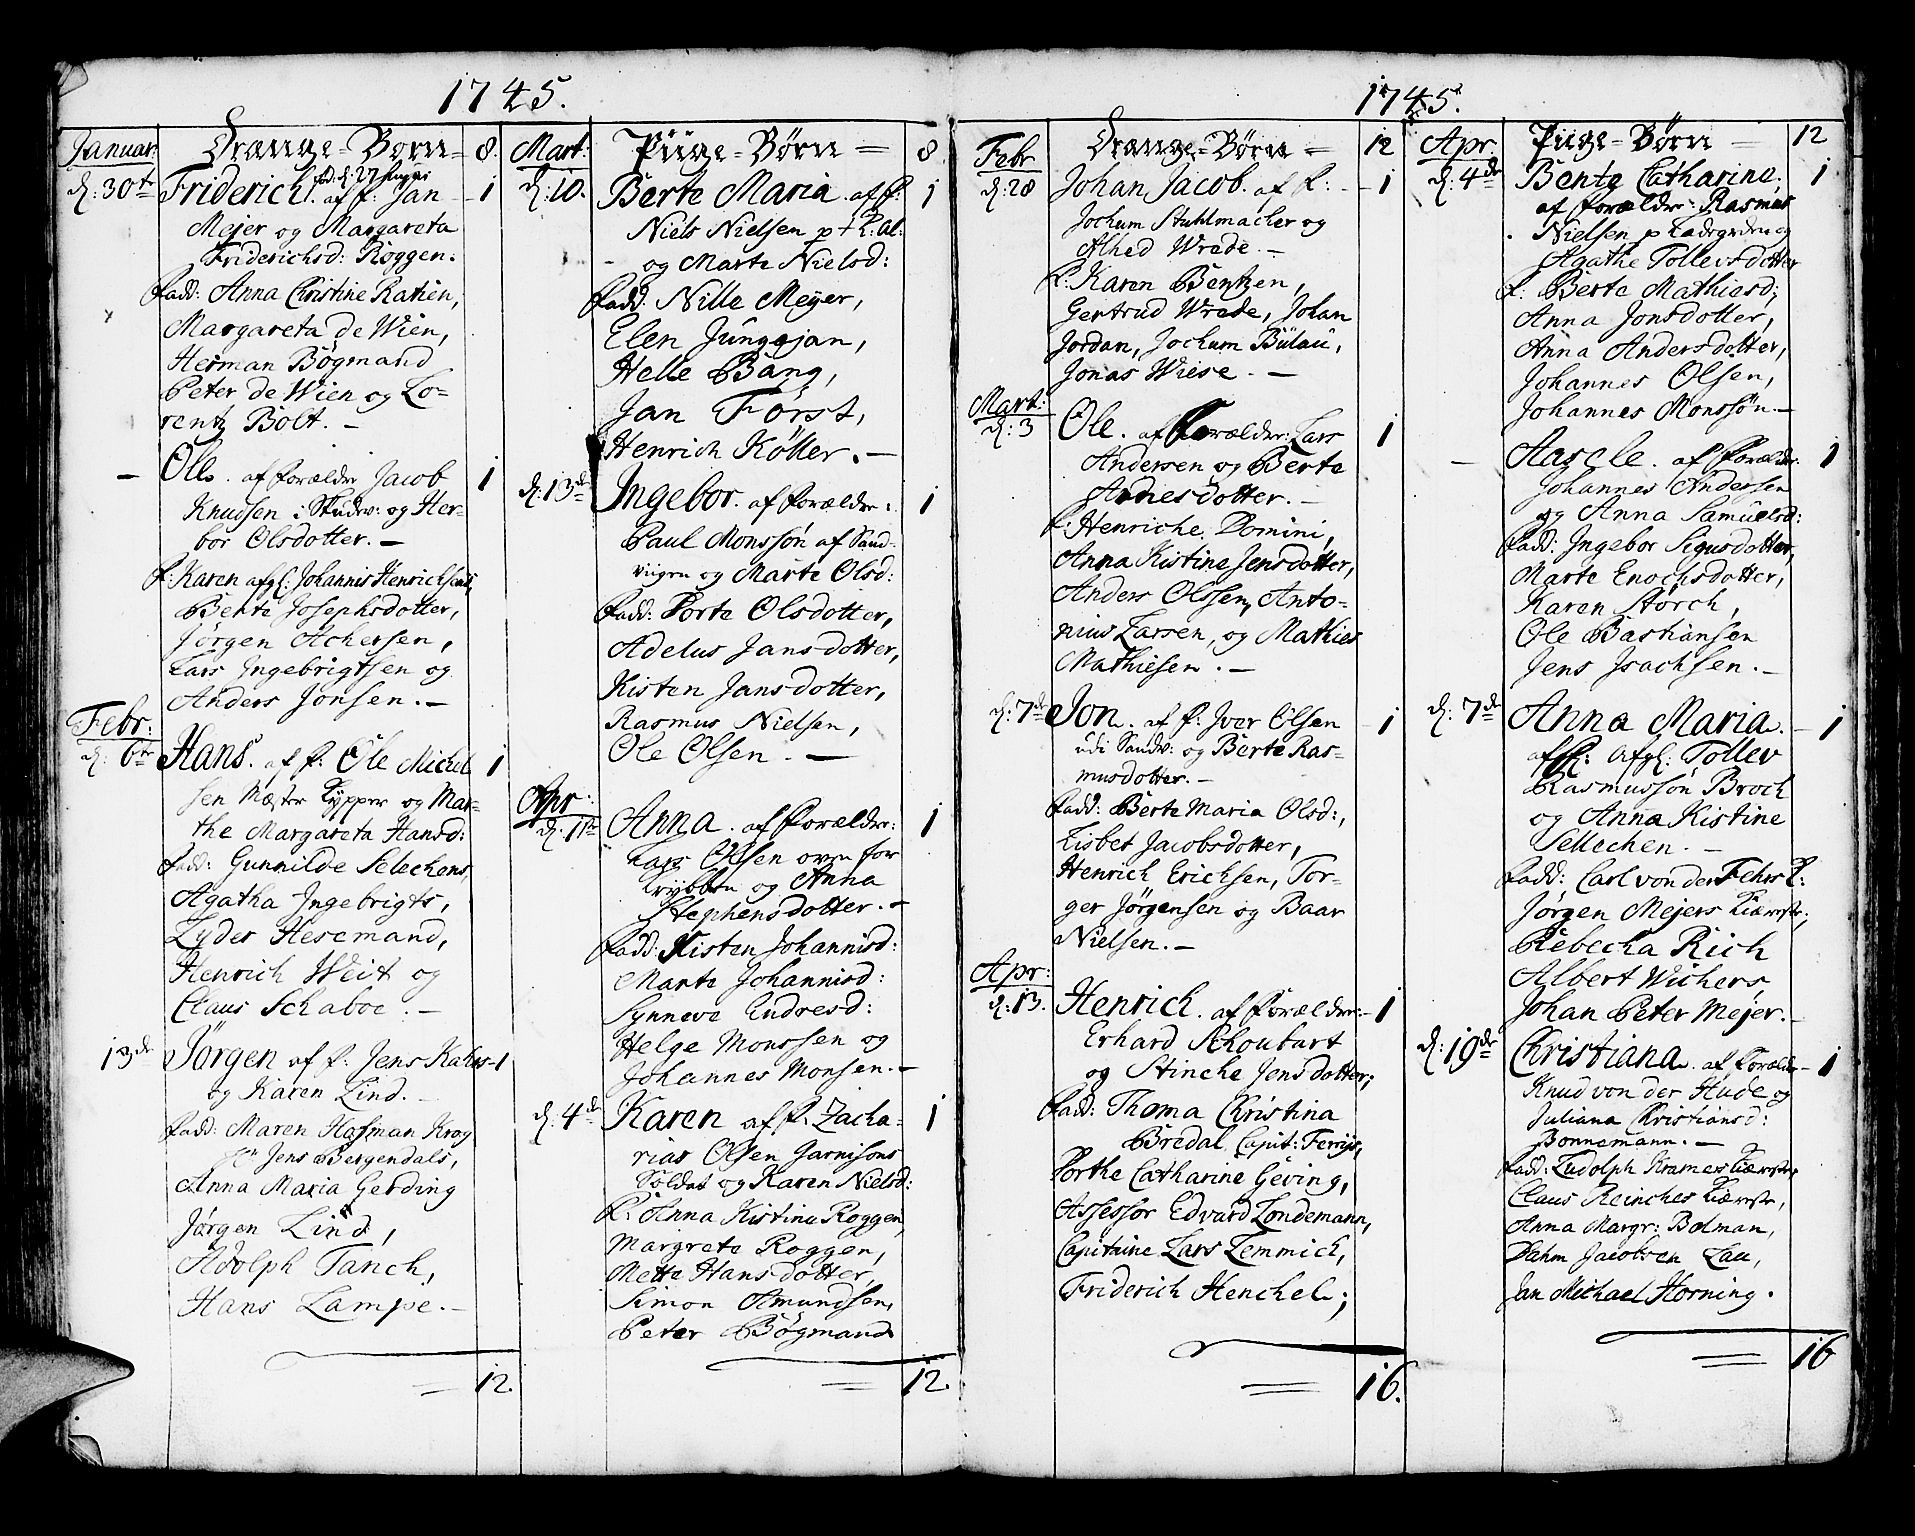 1745.
Januar:
Drænge-Børn
8.
d: 30te
Friderich. af f: Jan
1
Mejer og Margareta
Friderichsd: Roggen.
fadd: Anna Christine Ratien,
Margareta de Wien,
Herman Bøgmand
Peter de Wien og Lo-
rentz Bolt. -
Ole. af forældre Jacob
1
Knudsen i Studev: og Her-
bor Olsdotter. -
f: Karen afgl: Johannis Henrichsens,
Bente Josephsdotter,
Jørgen Achersen,
Lars Ingebrigtsen og
Anders Jonsen. -
Febr:
d: 6te
Hans. af f: Ole Michel
1
sen Mæster Kypper og Mar-
the Margareta Hansd:
fadd: Gunnilde Selechens,
Agatha Ingebrigts,
Lyder Hesemand,
Henrich Weit og
Claus Schaboe. -
13de
Jørgen af f: Jens Kahrs
1
og Karen Lind. -
fadd: Maren Hasman Krog
Sr Jens Bergendals,
Anna Maria Gerding
Jørgen Lind,
Adolph Tanch,
Hans Lampe. -
12.
Mart:
Piige-Børn
8
d: 10.
Berte Maria af f:
1
Niels Nielsen
og Marte Nielsd:
fadd: Nille Meyer,
Elen Jungejan,
Helle Bang,
Jan Først,
Henrich Köller. -
d: 13de
Ingebor. af forældre:
1
Paul Monssøn af Sand-
viigen og Marte Olsd:
fadd: Dorte Olsdotter,
Adelus Jansdotter,
Kisten Jansdotter,
Rasmus Nielsen,
Ole Olsen. -
Apr:
d: 11te
Anna. af forældre:
1
Lars Olsen oven for
Krybben og Anna
Stephensdotter. -
fadd: Kisten Johannisd:
Marte Johannisd:
Synneve Endresd:
Helge Monssen og
Johannes Monsen. -
d: 4de
Karen af f: Zacha-
1
rias Olsen Garnisons
Soldat og Karen Nielsd:
f: Anna Kistina Roggen,
Margrete Roggen,
Mette Hansdotter,
Simon Amundsen,
Peter Bøgmand
12.
1745.
Febr
Drænge-Børn
12
d: 28
Johan Jacob. af f:
1
Jochum Stuhlmacher og
Alhed Wrede. -
f: Karen Bentzen,
Gertrud Wrede, Johan
Jordan, Jochum Bülau,
Jonas Wiese. -
Mart:
d: 3
Ole. af forældre: Lars
1
Andersen og Berte
Arnesdotter. -
f: Henriche Domini,
Anna Kistine Jensdotter,
Anders Olssen, Anto-
nius Larsen, og Mathies
Mathiesen. -
d: 7de
Jon. af f: Iver Olsen
1
udi Sandv: og Berte Ras-
musdotter. -
fadd: Berte Maria Olsd:,
Lisbet Jacobsdotter,
Henrich Ericksen, Tor-
ger Jørgensen og Baar
Nielsen. -
Apr:
d: 13.
Henrich. af forældre:
1
Erhard Schoubart
og Stinche Jensdotter;
fadd: Thoma Christina
Bredal Capit: Ferrys,
Dorthe Catharine Geving,
Assessor Edvard Londemann,
Capitaine Lars Lemmich,
Friderich Henchel.;
16.
1745.
Apr:
Piige-Børn
12
d: 4de
Bente Catharine;
1
af forældre: Rasmus
Nielsen p Ladegorden og
Agathe Tollevsdotter
f: Berte Mathiesd:
Anna Jonsdotter,
Anna Andersdotter,
Johannes Olsen,
Johannes Monssøn. -
Aascle. af forældre:
1
Johannes Andersen
og Anna Samuelsd:
fadd: Ingebor Sigusdotter,
Marte Enochsdotter,
Karen Størch,
Ole Bastiansen
Jens Isachsen. -
d: 7de
Anna Maria.
1
af f: Afgl: Tollev
Rasmussøn Broch
og Anna Kistine
Sellechen. -
fadd: Carl von der Fehrs K:
Jørgen Mejers Kiæreste;
Rebecha Rich
Albert Wichers
Johan Peter Mejer. -
d: 19de
Christiana. af forældre
1
Knud von der Hude og
Juliana Christiansd:
Bonnemann. -
fadd: Ludolph Kramers Kiæreste,
Claus Reinches Kiæreste,
Anna Margr: Bolman,
Dahm Jacobsen Lau,
Jan Michael Horning.
16